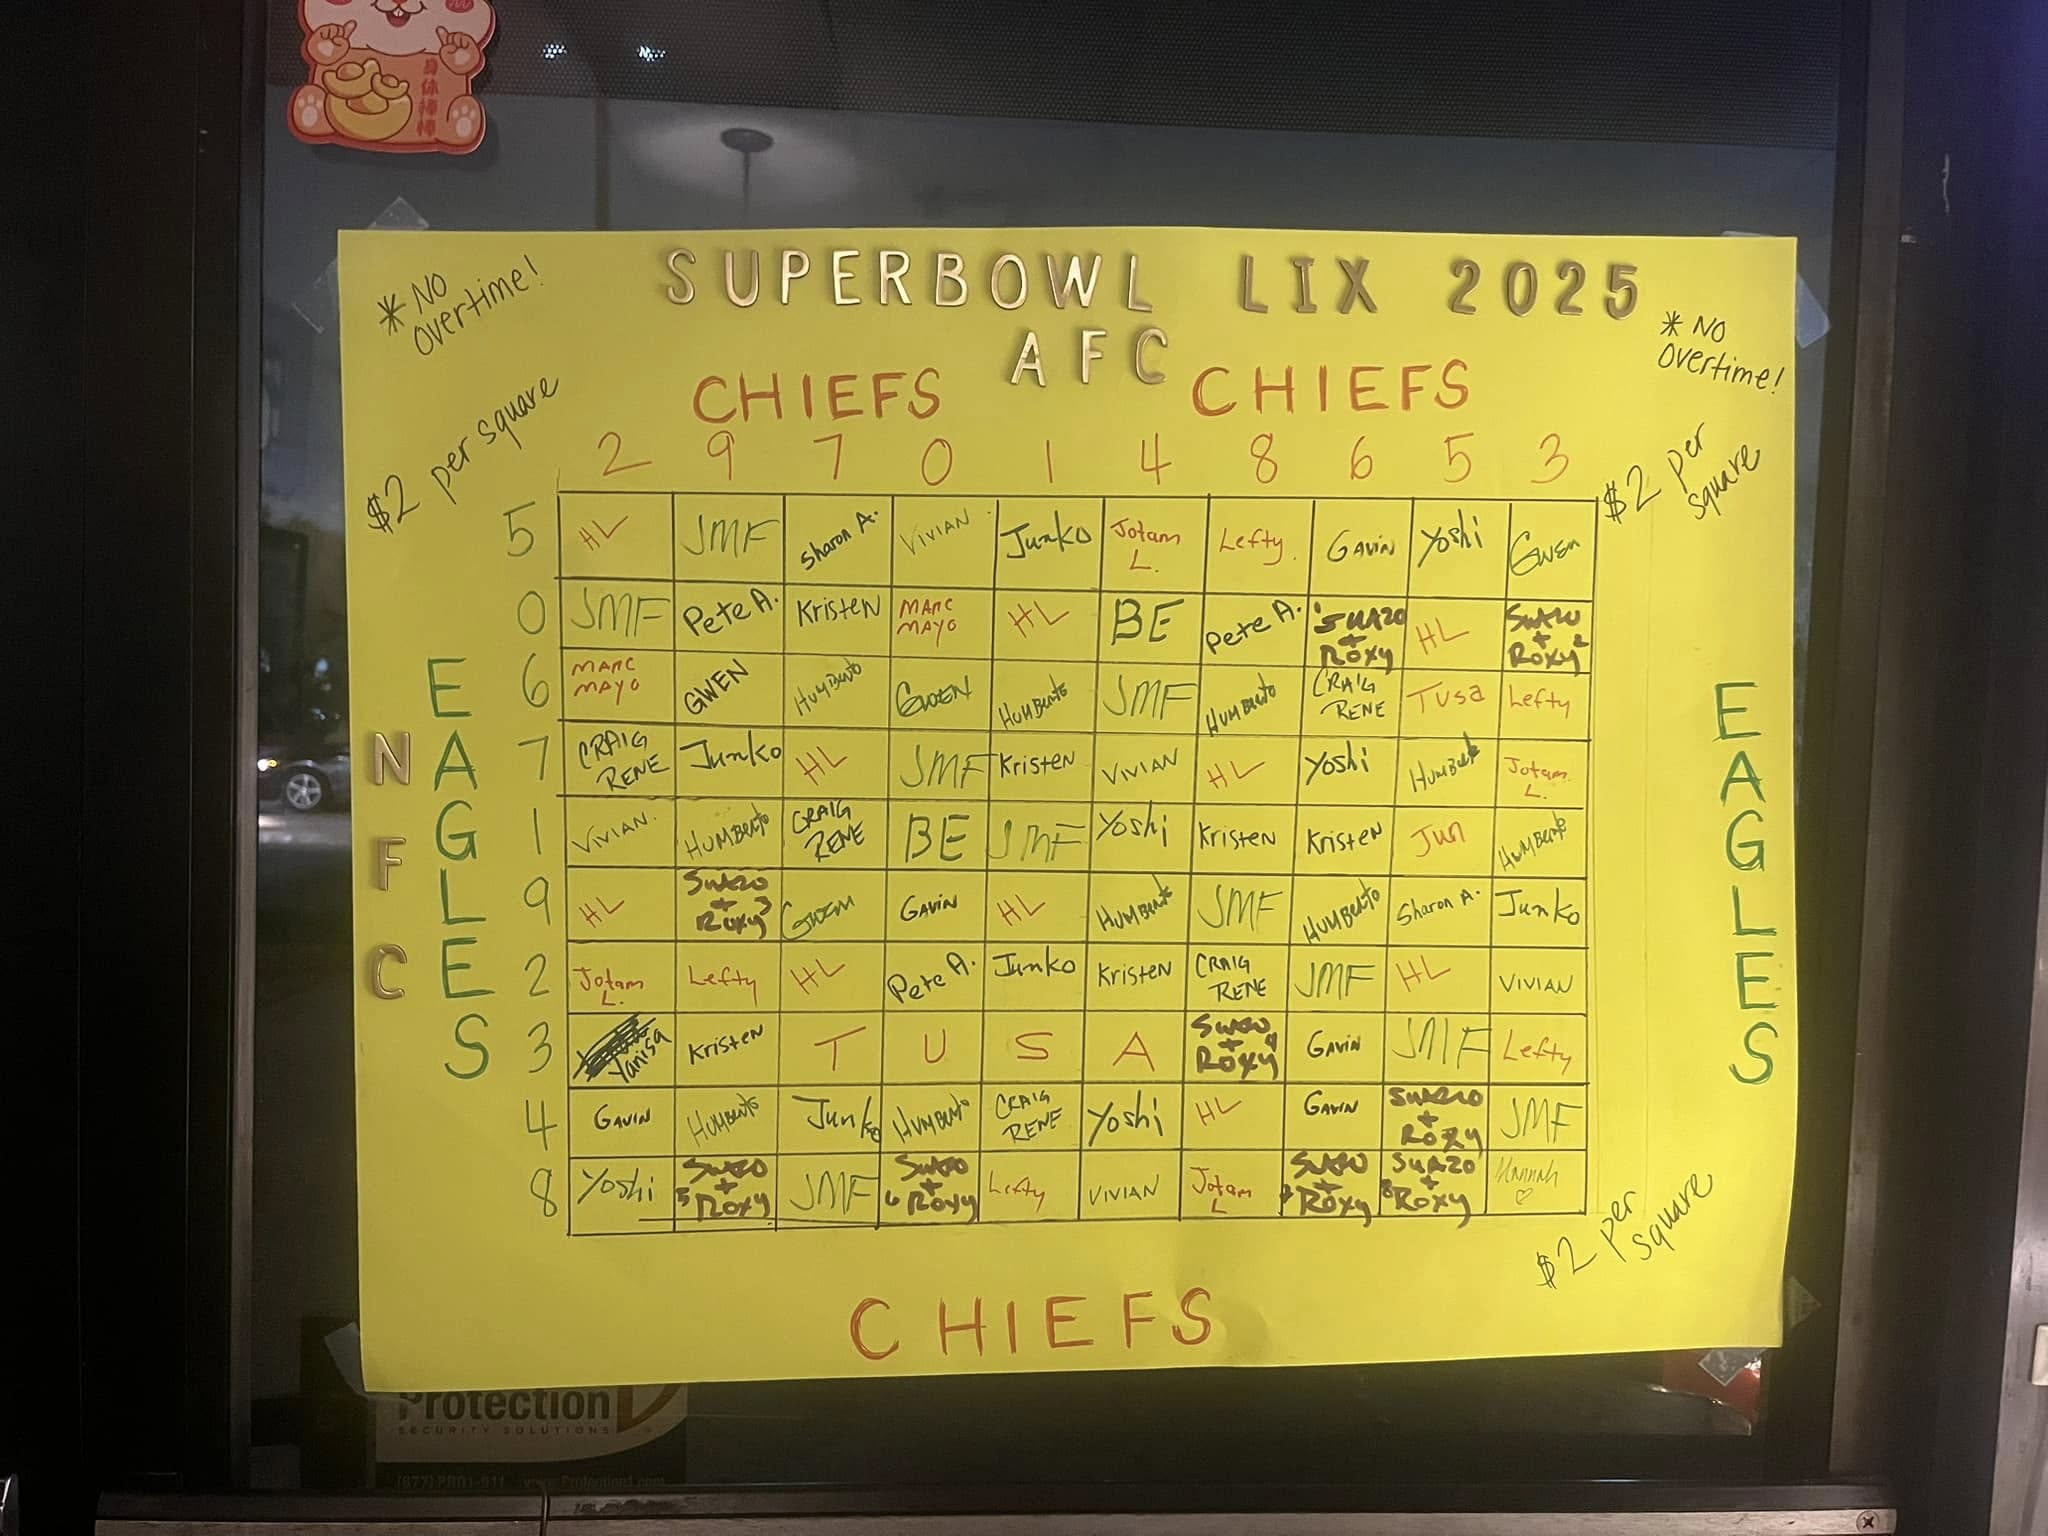 身体棒棒
SUPERBOWL LIX 2025
AFC
* NO
overtime!
* NO
overtime!
CHIEFS CHIEFS
$2 per square
$2 per
square
2 9 7 0 1 4 8 6 5 3
5 HL JMF Sharon A. VIVIAN Junko Jotam L. Lefty. GAVIN Yoshi GWEN
0 JMF Pete A. Kristen MARC MAYO HL BE Pete A. SUAZO + ROXY HL SUAZO + ROXY 2
6 MARC MAYO GWEN HUMBERTO GWEN HUMBERTO JMF HUMBERTO CRAIG RENE TUSA Lefty
7 CRAIG RENE Junko HL JMF Kristen VIVIAN HL Yoshi HUMBERTO Jotam L.
1 VIVIAN. HUMBERTO CRAIG RENE BE JMF Yoshi Kristen Kristen Jun HUMBERTO
9 HL SUAZO + ROXY 3 GWEN GAVIN HL HUMBERTO JMF HUMBERTO Sharon A. Junko
2 Jotam L. Lefty HL Pete A. Junko Kristen CRAIG RENE JMF HL VIVIAN
3 Yanisa Kristen T U S A SUAZO + ROXY 4 GAVIN JMF Lefty
4 GAVIN HUMBERTO Junko HUMBERTO CRAIG RENE Yoshi HL GAVIN SUAZO + ROXY JMF
8 Yoshi SUAZO + 5 ROXY JMF SUAZO + 6 ROXY Lefty VIVIAN Jotam L SUAZO + ROXY SUAZO + 8 ROXY Hannah ♡
NFC
EAGLES
EAGLES
$2 per
square
CHIEFS
Protection 1
SECURITY SOLUTIONS
(877) PRO1-911 www.Protection1.com